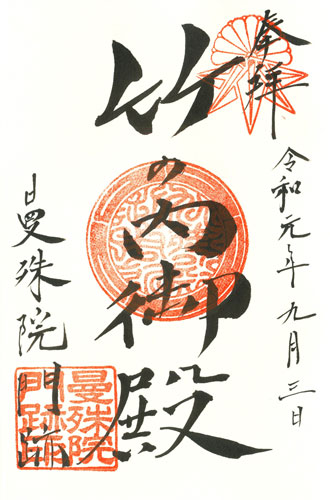 奉拝
令和元年九月三日
竹の内御殿
曼殊院門跡
曼殊院
門跡